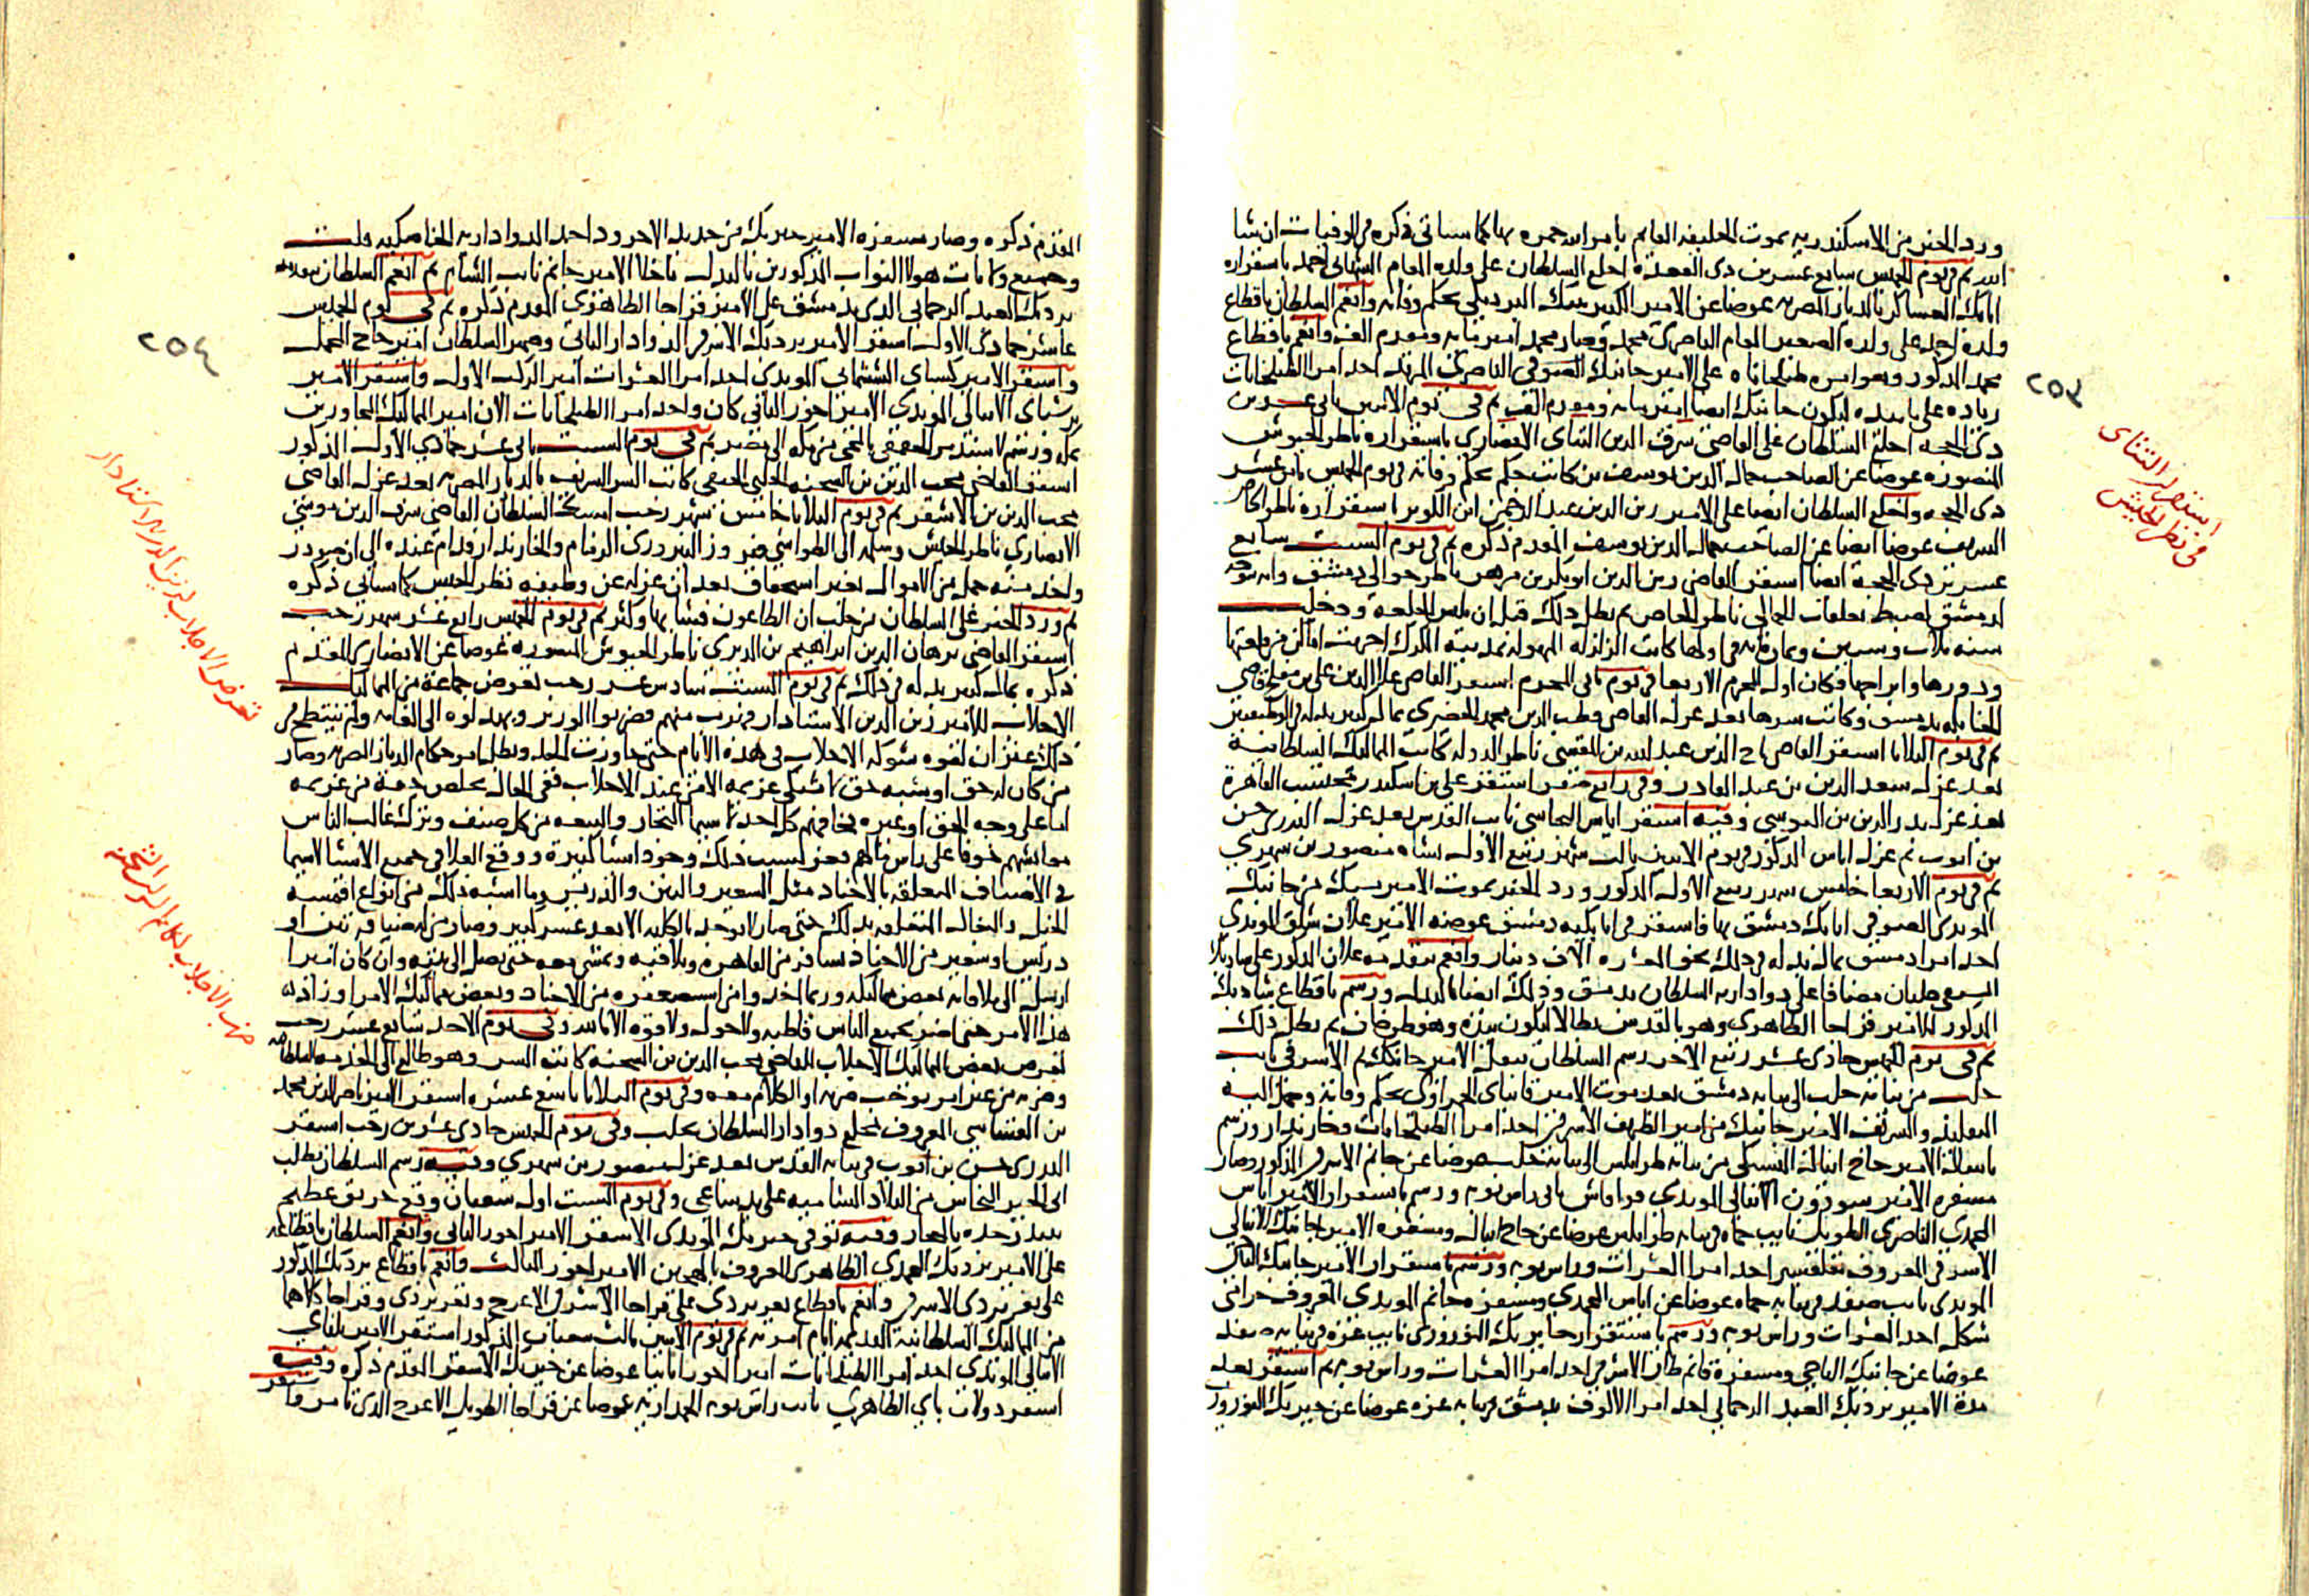 ورد الخبر من الاسكندريه بموت الخليفه القايم بامر الله حمزه بها كما سياتى ذكره فى الوفيات ان شا
الله ثم فى يوم الخميس سابع عشرين ذى القعدة اخلع السلطان على ولده المقام الشهابى احمد باستقراره
اتابك العساكر بالديار المصريه عوضا عن الامير الكبير تنبك البردبكى بحكم وفاته وانعم السلطان باقطاع
ولده احمد على ولده الصغير المقام الناصرى محمد وصار محمد امير مايه ومقدم الف وانعم باقطاع
محمد المذكور وهو امره طبلخاناه على الامير جانبك الصوفى الناصرى المرتد احد امرا الطبلخانات
زياده على ما بيده ليكون جانبك ايضا امير مايه ومقدم الف ثم فى يوم الاثنين ثانى عشرين
ذى الحجه اخلع السلطان على القاضى شرف الدين التتاى الانصارى باستقراره ناظر الجيوش
المنصوره عوضا عن الصاحب جمال الدين يوسف بن كاتب جكم بحكم وفاته فى يوم الخميس ثامن عشر
ذى الحجه واخلع السلطان ايضا على الامير زين الدين عبد الرحمن ابن الكويز باستقراره ناظر الخاص
الشريف عوضا ايضا عن الصاحب جمال الدين يوسف المقدم ذكره ثم فى يوم السبت سابع
عشرين ذى الحجة ايضا استقر القاضى زين الدين ابو بكر بن مزهر ناظر جوالى دمشق وانه يتوجه
لدمشق لضبط تعلقات الجمالى ناظر الخاص ثم بطل ذلك قبل ان يلبس الخلعة ودخلت
سنه ثلاث وستين وثمان مايه فى اولها كانت الزلزله المهوله بمدينة الكرك اخربت اماكن من قلعتها
ودورها وابراجها فكان اول المحرم الاربعا فى يوم ثانى المحرم استقر القاضى علا الدين على بن مفلح قاضى
الحنابله بدمشق وكاتب سرها بعد عزل القاضى قطب الدين محمد الخيضرى بمال كبير بذله فى الوظيفتين
ثم فى يوم الثلاثا استقر القاضى تاج الدين عبد الله بن المقسى ناظر الدوله كاتب المماليك السلطانية
بعد عزل سعد الدين بن عبد القادر وفى رابع صفر استقر على بن اسكندر محتسب القاهرة
بعد عزل بدر الدين بن البوصى وفيه استقر اياس البجاسى نايب القدس بعد عزل البدرى حسن
بن ايوب ثم عزل اياس المذكور فى يوم الاثنين ثالث شهر ربيع الاول بشاه منصور بن شهرى
ثم فى يوم الاربعا خامس شهر ربيع الاول المذكور ورد الخبر بموت الامير يشبك من جانبك
المويدى الصوفى اتابك دمشق بها فاستقر فى اتابكيه دمشق عوضه الامير علان شلق المويدى
احد امرا دمشق بمال بذله فى ذلك نحو العشره الاف دينار وانعم بتقدمه علان المذكور على شادبك
السيفى جلبان مضافا على دواداريه السلطان بدمشق وذلك ايضا بالبذل ورسم باقطاع شادبك
المذكور للامير قراجا الظاهرى وهو بالقدس بطالا ليكون بيده وهو طرخان ثم بطل ذلك
ثم فى يوم الخميس حادى عشر ربيع الاخر رسم السلطان بنقل الامير جانم الاشرفى نايب
حلب من نيابة حلب الى نيابه دمشق بعد موت الامير قانباى الحمزاوى بحكم وفاته وحمل اليه
التقليد والتشريف الامير جانبك من امير الظريف الاشرفى احد امرا الطبلخانات وخازندار ورسم
بانتقال الامير حاج اينال اليشبكى من نيابه طرابلس الى نيابة حلب عوضا عن جانم الاشرفى المذكور وصار
مسفره الامير سودون الاينالى المويدى قراقاش ثانى راس نوبه ورسم باستقرار الامير اياس
المحمدى الناصرى الطويل نايب حماه فى نيابه طرابلس عوضا عن حاج اينال ومسفره الامير جانبك الاينالى
الاشرفى المعروف بقلقسيز احد امرا العشرات وراس نوبه ورسم باستقرار الامير جانبك التاجى
المويدى نايب صفد فى نيابه حماه عوضا عن اياس المحمدى ومسفره جانم المويدى المعروف حرامى
شكل احد العشرات وراس نوبه ورسم باستقرار خاير بك النوروزى نايب غزه فى نيابه صفد
عوضا عن جانبك التاجى ومسفرة قانم طاز الاشرفى احد امرا العشرات وراس نوبه ثم استقر بعد
مدة الامير بردبك العبد الرحمانى احد امرا الالوف بدمشق فى نيابه غزه عوضا عن خيربك النوروزى
٢٥٣
استقرار التتاى
فى نظر الجيش
المقدم ذكره وصار مسفره الامير خيربك من حديد الاجرود احد الدواداريه الخاصكيه قلت
وجميع ولايات هولا النواب المذكورين بالبذل ما خلا الامير جانم نايب الشام ثم انعم السلطان بتقدمه
بردبك العبد الرحمانى الذى بدمشق على الامير قراجا الظاهرى المقدم ذكره ثم فى يوم الخميس
عاشر جمادى الاول استقر الامير بردبك الاشرفى الدوادار الثانى وصهر السلطان امير حاج المحمل
واستقر الامير كسباى الششمانى المويدى احد امرا العشرات امير الركب الاول واستقر الامير
برشباى الاينالى المويدى الامير اخور الثانى كان واحد امرا الطبلخانات الان امير المماليك المجاورين
بمكه ورسم لاسندمر الجقمقى بالمجى من مكه الى مصر ثم فى يوم السبت ثانى عشر جمادى الاول المذكور
استقر القاضى محب الدين بن الشحنه الحلبى الحنفى كاتب السر الشريف بالديار المصريه بعد عزل القاضى
محب الدين بن الاشقر ثم فى يوم الثلاثا خامس شهر رجب امسك السلطان القاضى شرف الدين موسى
الانصارى ناظر الجيش وسلمه الى الطواشى فيروز النوروزى الزمام والخازندار ودام عنده الى ان صودر
واخذ منه جمل من الاموال بغير استحقاق بعد ان عزل عن وظيفه نظر الجيش كما سياتى ذكره
ثم ورد الخبر على السلطان من حلب ان الطاعون فشا بها وكثر ثم فى يوم الخميس رابع عشر شهر رجب
استقر القاضى برهان الدين ابراهيم بن الديرى ناظر الجيوش المنصوره عوضا عن الانصارى المقدم
ذكره بمال كبير بذله فى ذلك ثم فى يوم السبت سادس عشر رجب تعرض جماعة من المماليك
الاجلاب للامير زين الدين الاستادار فهرب منهم فضربوا الوزير وبهدلوه الى الغايه ولم ينتطح فى
ذلك عنزان لقوه شوكه الاجلاب فى هذه الايام حتى جاوزت الحد وبطل امر حكام الديار المصريه وصار
من كان له حق او شبه حق لا يشتكى غريمه الا من عند الاجلاب ففى الحال يخلص حقه من غريمه
اما على وجه الحق او غيره فخافهم كل احد لا سيما التجار والبيعه من كل صنف وترك غالب الناس
معايشهم خوفا على راس مالهم فعز لسبب ذلك وجود اشيا كثيرة ووقع الغلا فى جميع الاشيا لا سيما
فى الاصناف المتعلقه بالاجناد مثل الشعير والتبن والدريس وما اشبه ذلك من انواع اقمشه
الخيل والبغال المتعلقه بذلك حتى صار لا يوجد بالكليه الا بعد عسر كبير وصار من له ضيافه تبن او
دريس او شعير من الاجناد يسافر من القاهره ويلاقيه ويمشى معه حتى يصل الى بيته وان كان اميرا
ارسل الى ملاقاته بعض مماليكه وربما اخذوا من استضعفوه من الاجناد وبعض مماليك الامرا وزاد
هذا الامر حتى اضر بجميع الناس قاطبه ولا حول ولا قوه الا بالله وفى يوم الاحد سابع عشر رجب
تعرض بعض المماليك الاجلاب القاضى محب الدين بن الشحنة كاتب السر وهو طالع الى الخدمه السلطانيه
وضربه من غير امر يوجب ضربه او الكلام معه وفى يوم الثلاثا تاسع عشره استقر الامير ناصر الدين محمد
بن القساسى المعروف بخليع دوادار السلطان بحلب وفى يوم الخميس حادى عشرين رجب استقر
البدرى حسن بن ايوب فى نيابه القدس بعد عزل شاه منصور بن شهرى وفيه رسم السلطان بطلب
ابى الخير النحاس من البلاد الشاميه على يد ساعى وفى يوم السبت اول شعبان وقع حريق عظيم
ببندر جده بالحجاز وفيه توفى خيربك المويدى الاشقر الامير اخور الثانى وانعم السلطان باقطاعه
على الامير بردبك المحمدى الظاهرى المعروف بالهجين الامير اخور الثالث وانعم باقطاع بردبك المذكور
على تغرى بردى الاشرفى وانعم باقطاع تغرى بردى على قراجا الاشرفى الاعرج وتغرى بردى وقراجا كلاهما
من المماليك السلطانية القديمه ايام امريه ثم فى يوم الاثنين ثالث شعبان المذكور استقر الامير يلباى
الاينالى المويدى احد امرا الطبلخانات امير اخور ثانيا عوضا عن خيربك الاشقر المقدم ذكره وفيه
استقر دولات باى الظاهرى نايب راس نوبه الجمداريه عوضا عن قراجا الطويل الاعرج الذى تامر
٢٥٤
تعرض الاجلاب لزين الدين الاستادار
ضرب الاجلاب لكاتم السر ابن الشحنه